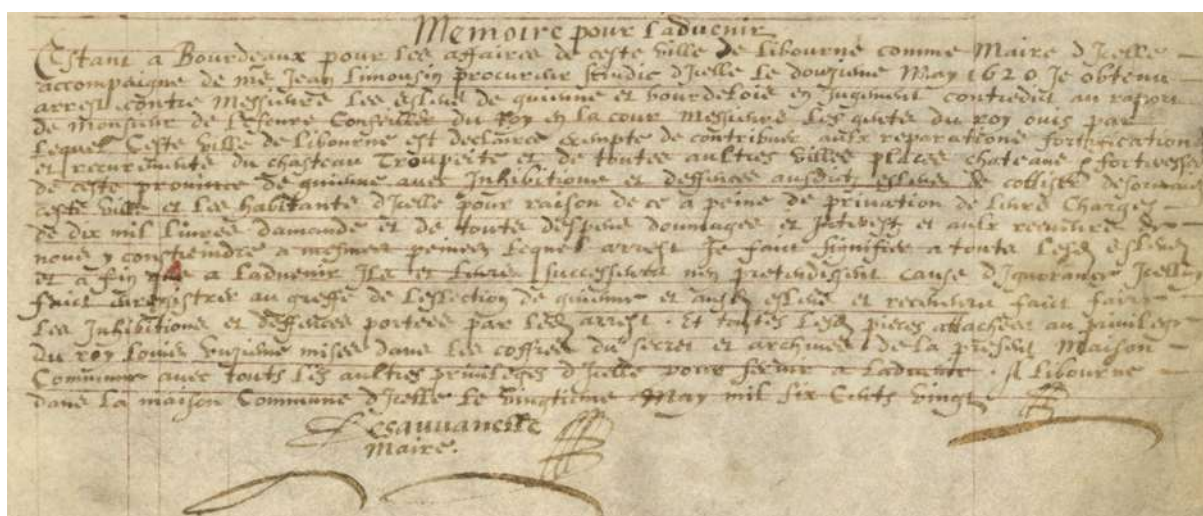 Memoire pour Ladvenir
Estant a Bourdeaux pour Les affaires de ceste ville de Libourne comme Maire d'Icelle
accompaigne de me Jean Limousin procureur sindic d'Icelle Le douziesme May 1620 Je obtenu
arrest contre Messieurs Les esleus de guienne et bourdelois en Jugement contredict au raport
de Monsieur de Conseiller du Roy en La cour Messieurs Les gents du roy ouis par
Lequel Ceste ville de Libourne est declairee exempte de contribuer aulx reparations fortifications
et recurements du chasteau Trompette et de toutes aultres villes places chateaux & fortresses
de ceste province de guienne avec Inhibitions et deffences ausdits esleus de cottiser desormais
ceste ville et Les habitants d'Icelle pour raison de ce a peine de privation de Leurs Charges
de dix mil Livres damande et de touts despens doumages et Interest et aulx receveurs de
nous y constreindre a mesmes peines Lequel arrest Je faict signifier a touts Lesd esleus
et a fin que a Ladvenir Ils et Leurs successeurs nen pretendissent cause d'Ignorance Icelluy
faict enregistrer au greffe de Leslection de guienne et ausd esleus et receveurs faict faire
Les Inhibitions et deffences portees par Lesd arrest. Et toutes Lesd pieces attachees au privilege
du roy Louis unziesme mises dans Les coffres du secret et archives de La presente Maison
Commune avec touts Les aultres privileges d'Icelle pour servir a Ladvenir. A Libourne
dans La maison Commune d'Icelle Le vingtiesme May mil six Cents vingt
Maire.